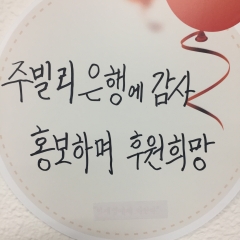 주빌리은행에 감사
홍보하며 후원희망